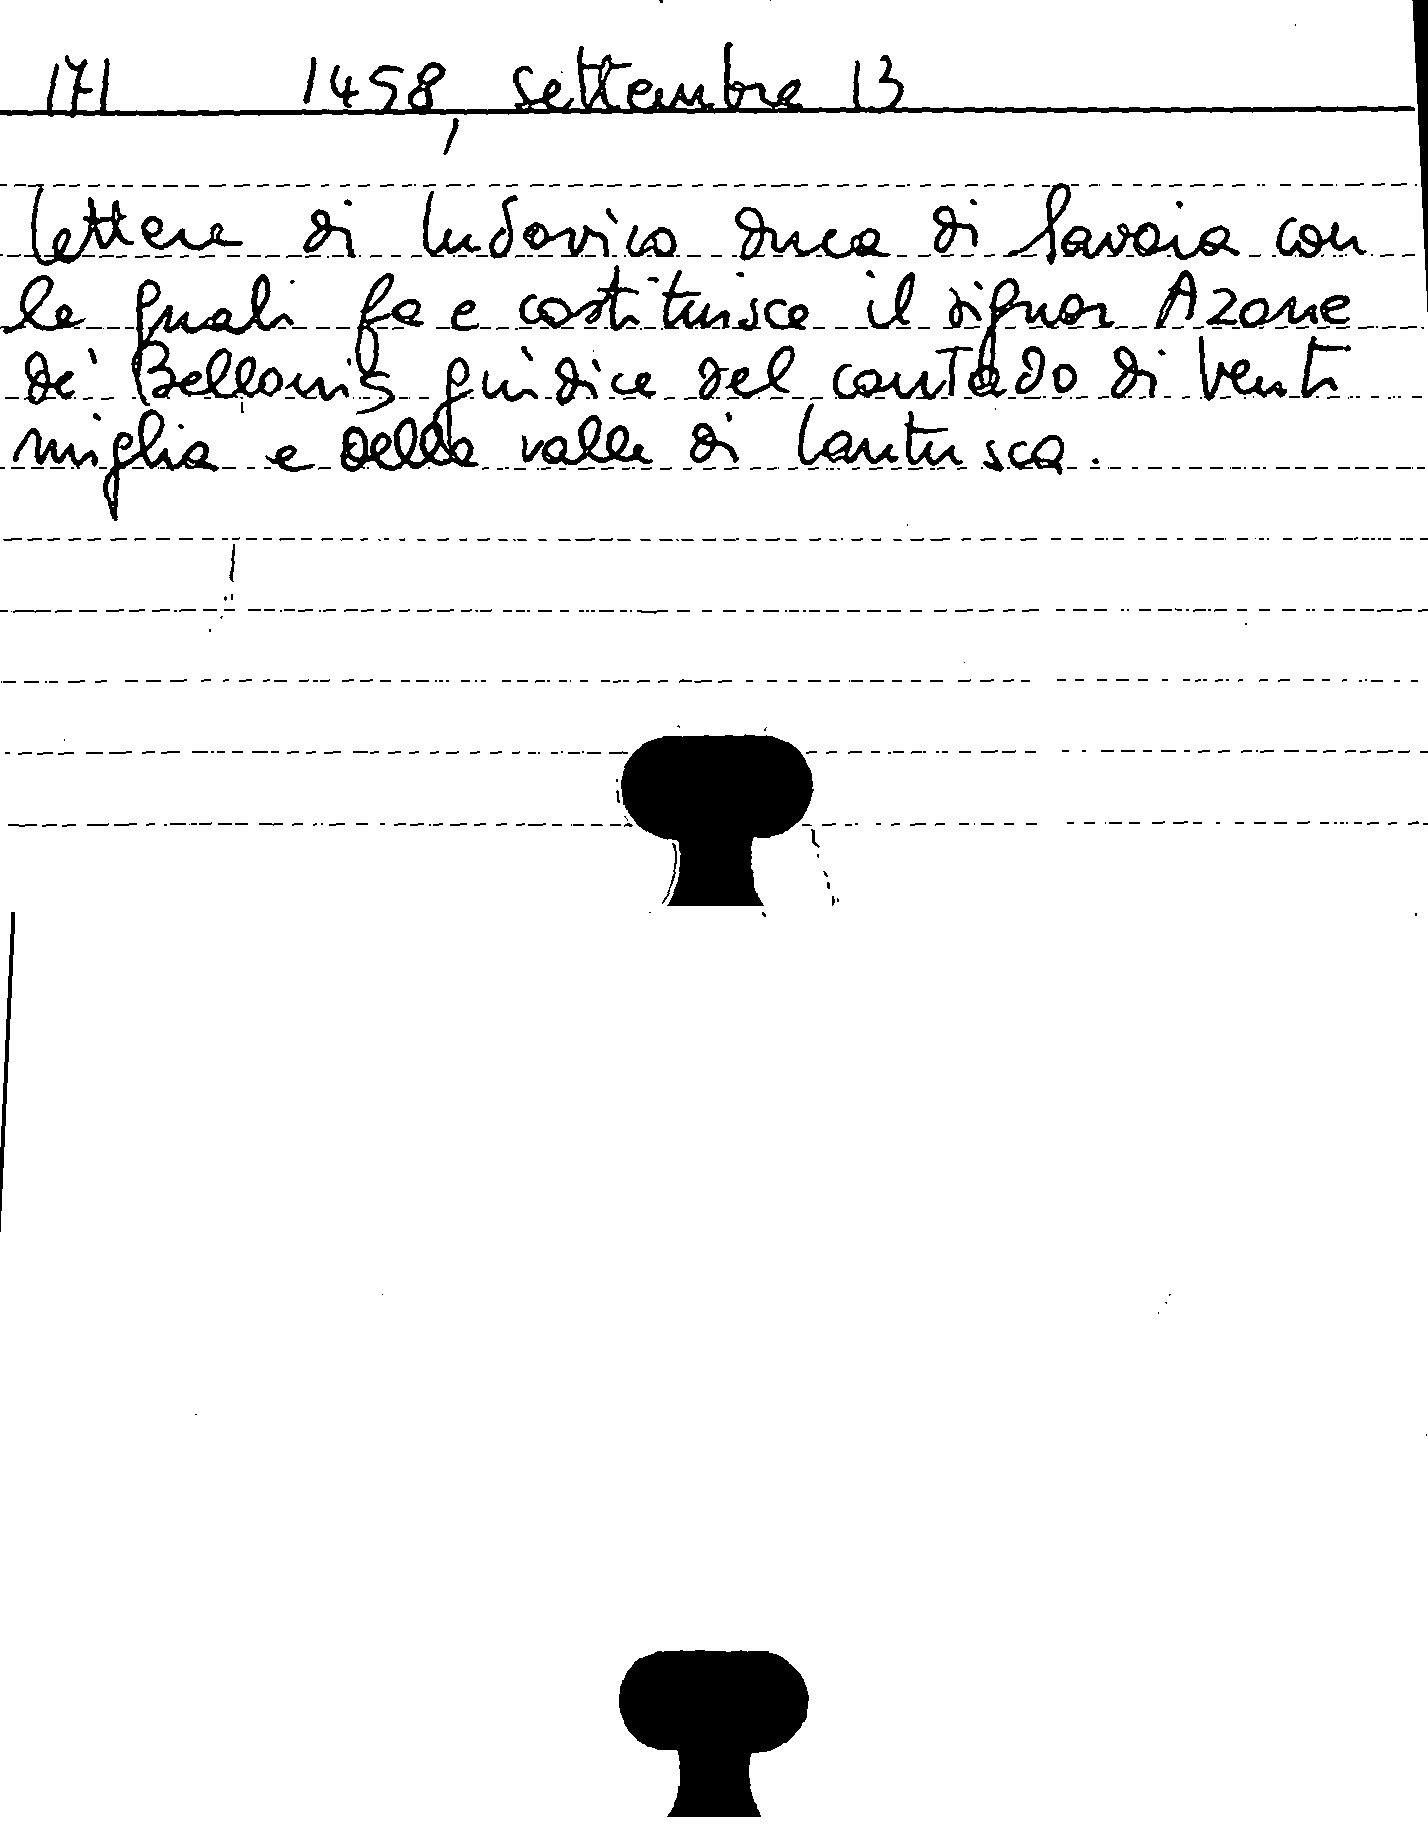 171 1458, settembre 13
Lettere di Ludovico duca di Savoia con
le quali fa e costituisce il signor Azone
de' Bellonis giudice del contado di Venti
miglia e della valle di Lantusca.